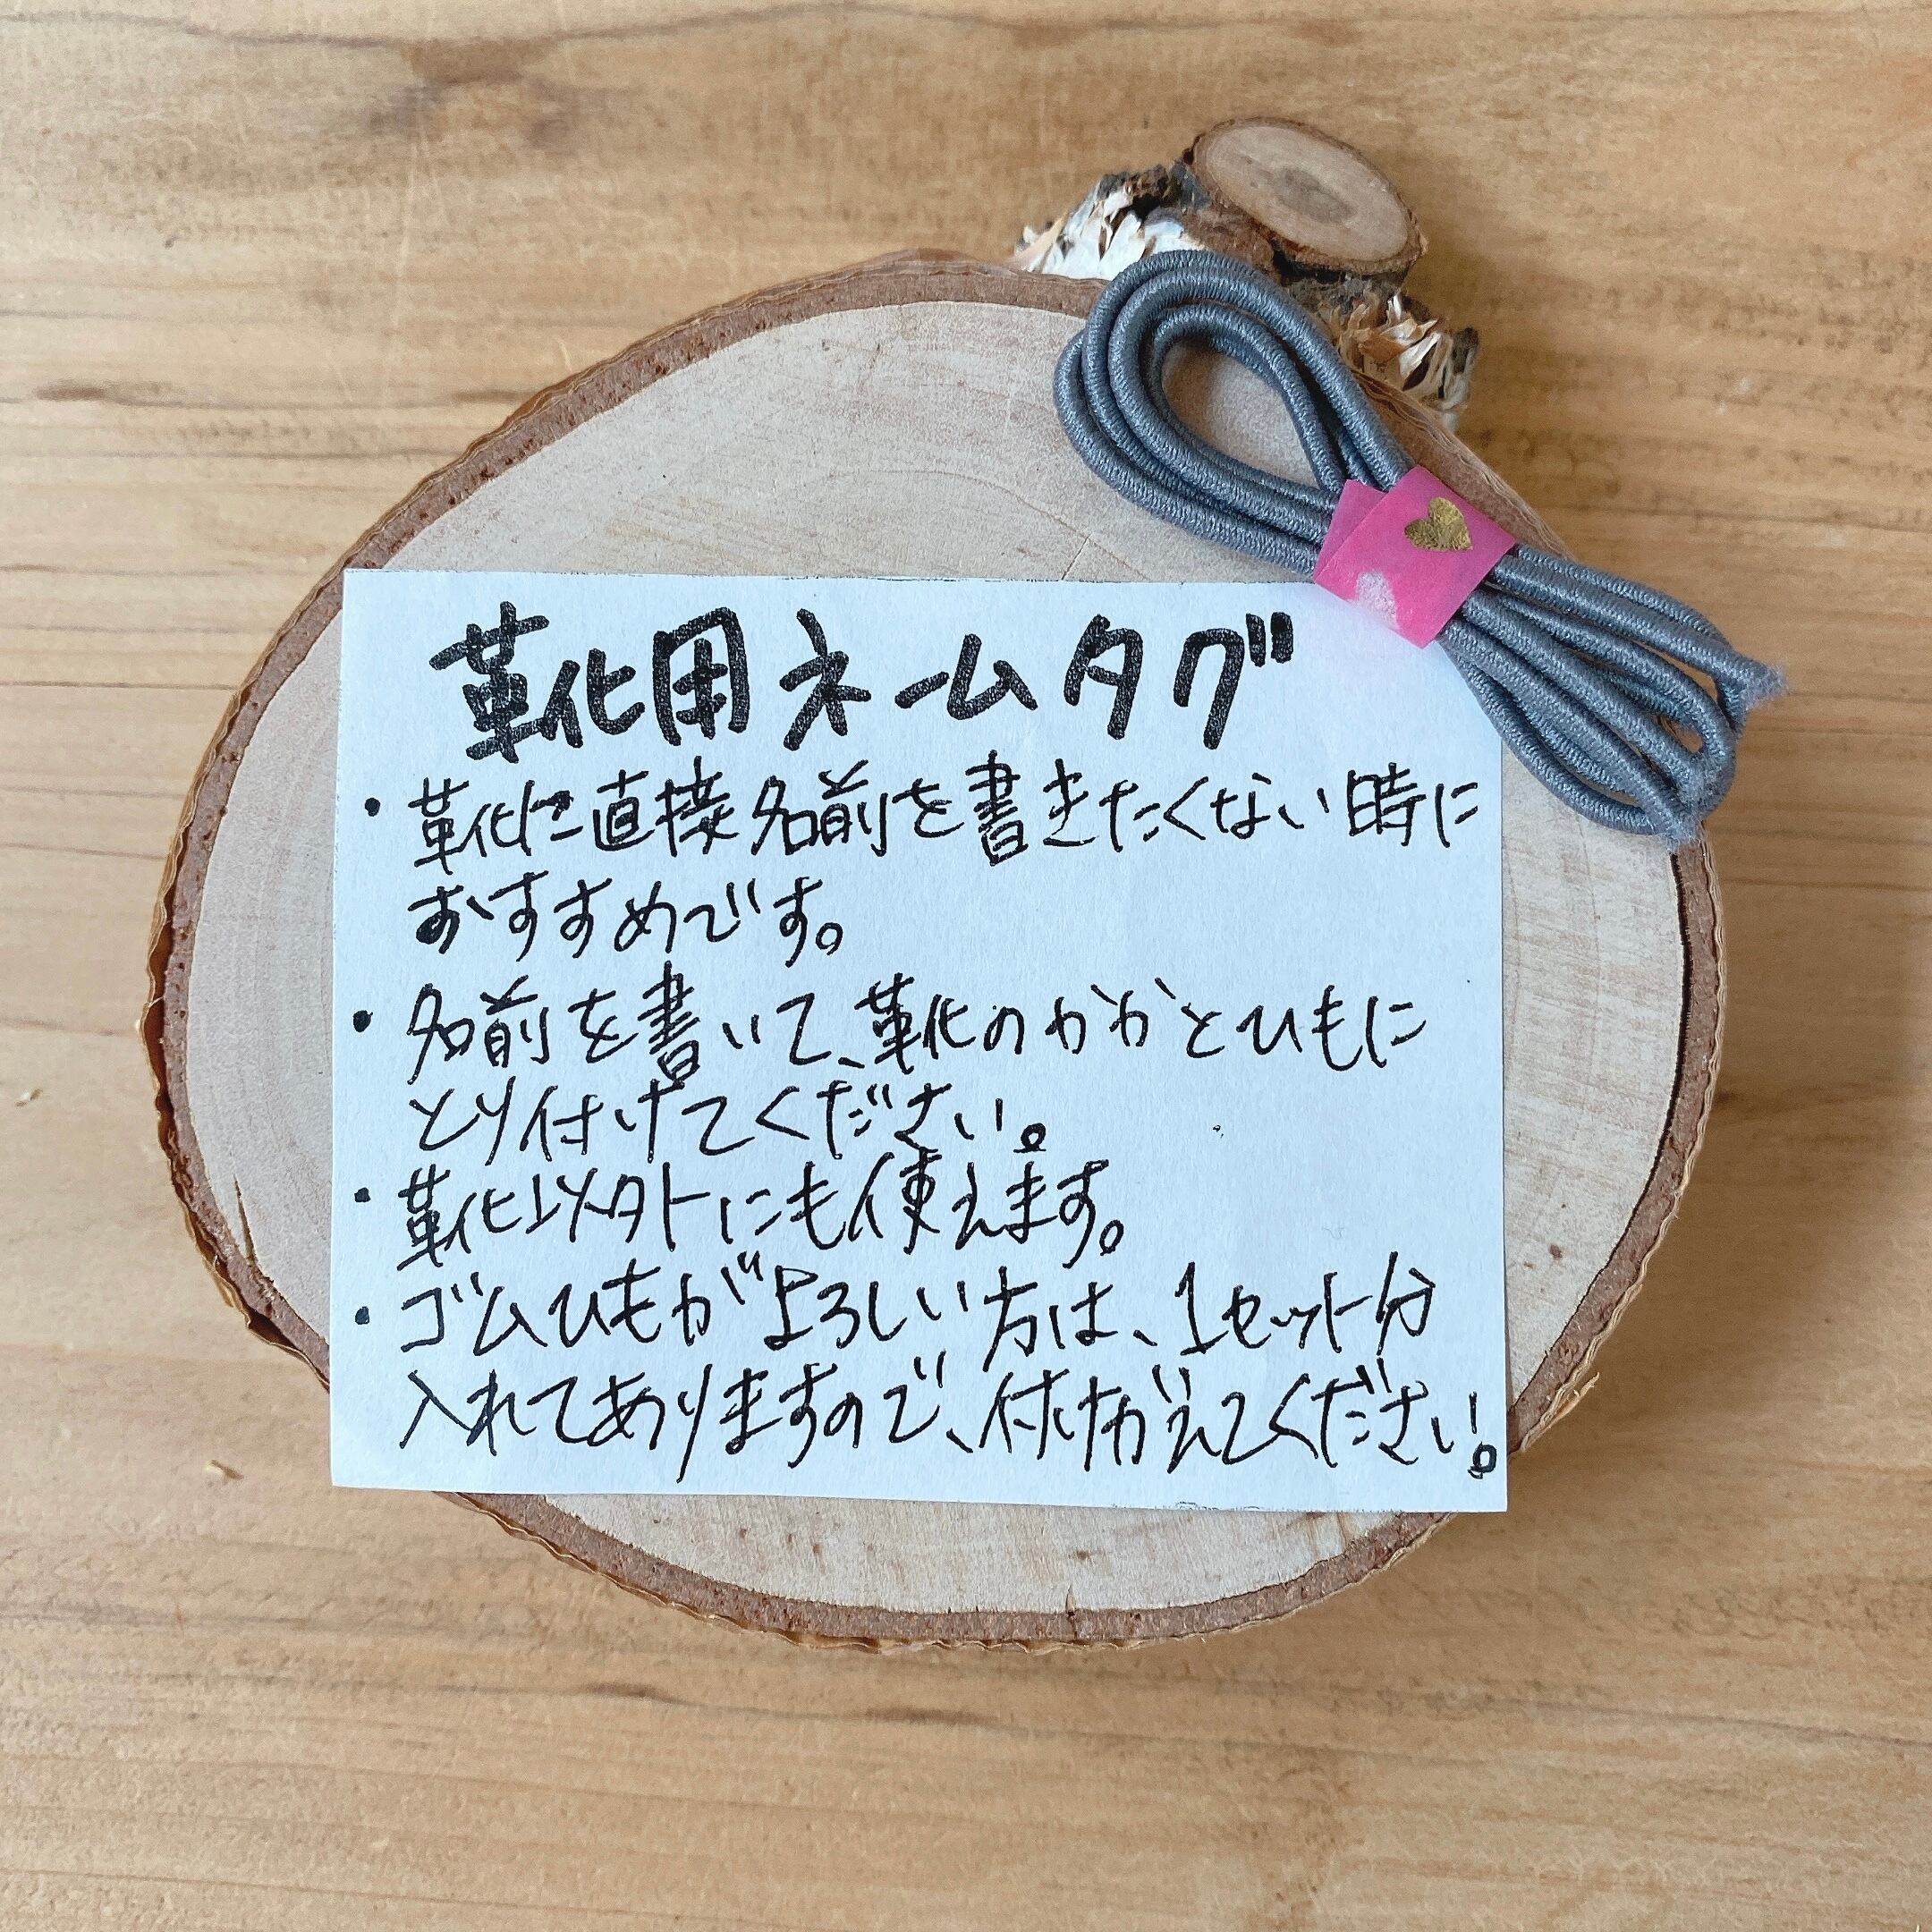 靴用ネームタグ
・靴に直接名前を書きたくない時に
おすすめです。
・名前を書いて、靴のかかとひもに
とり付けてください。
・靴以外にも使えます。
・ゴムひもがよろしい方は、1セット分
入れてありますので、付けかえてください。